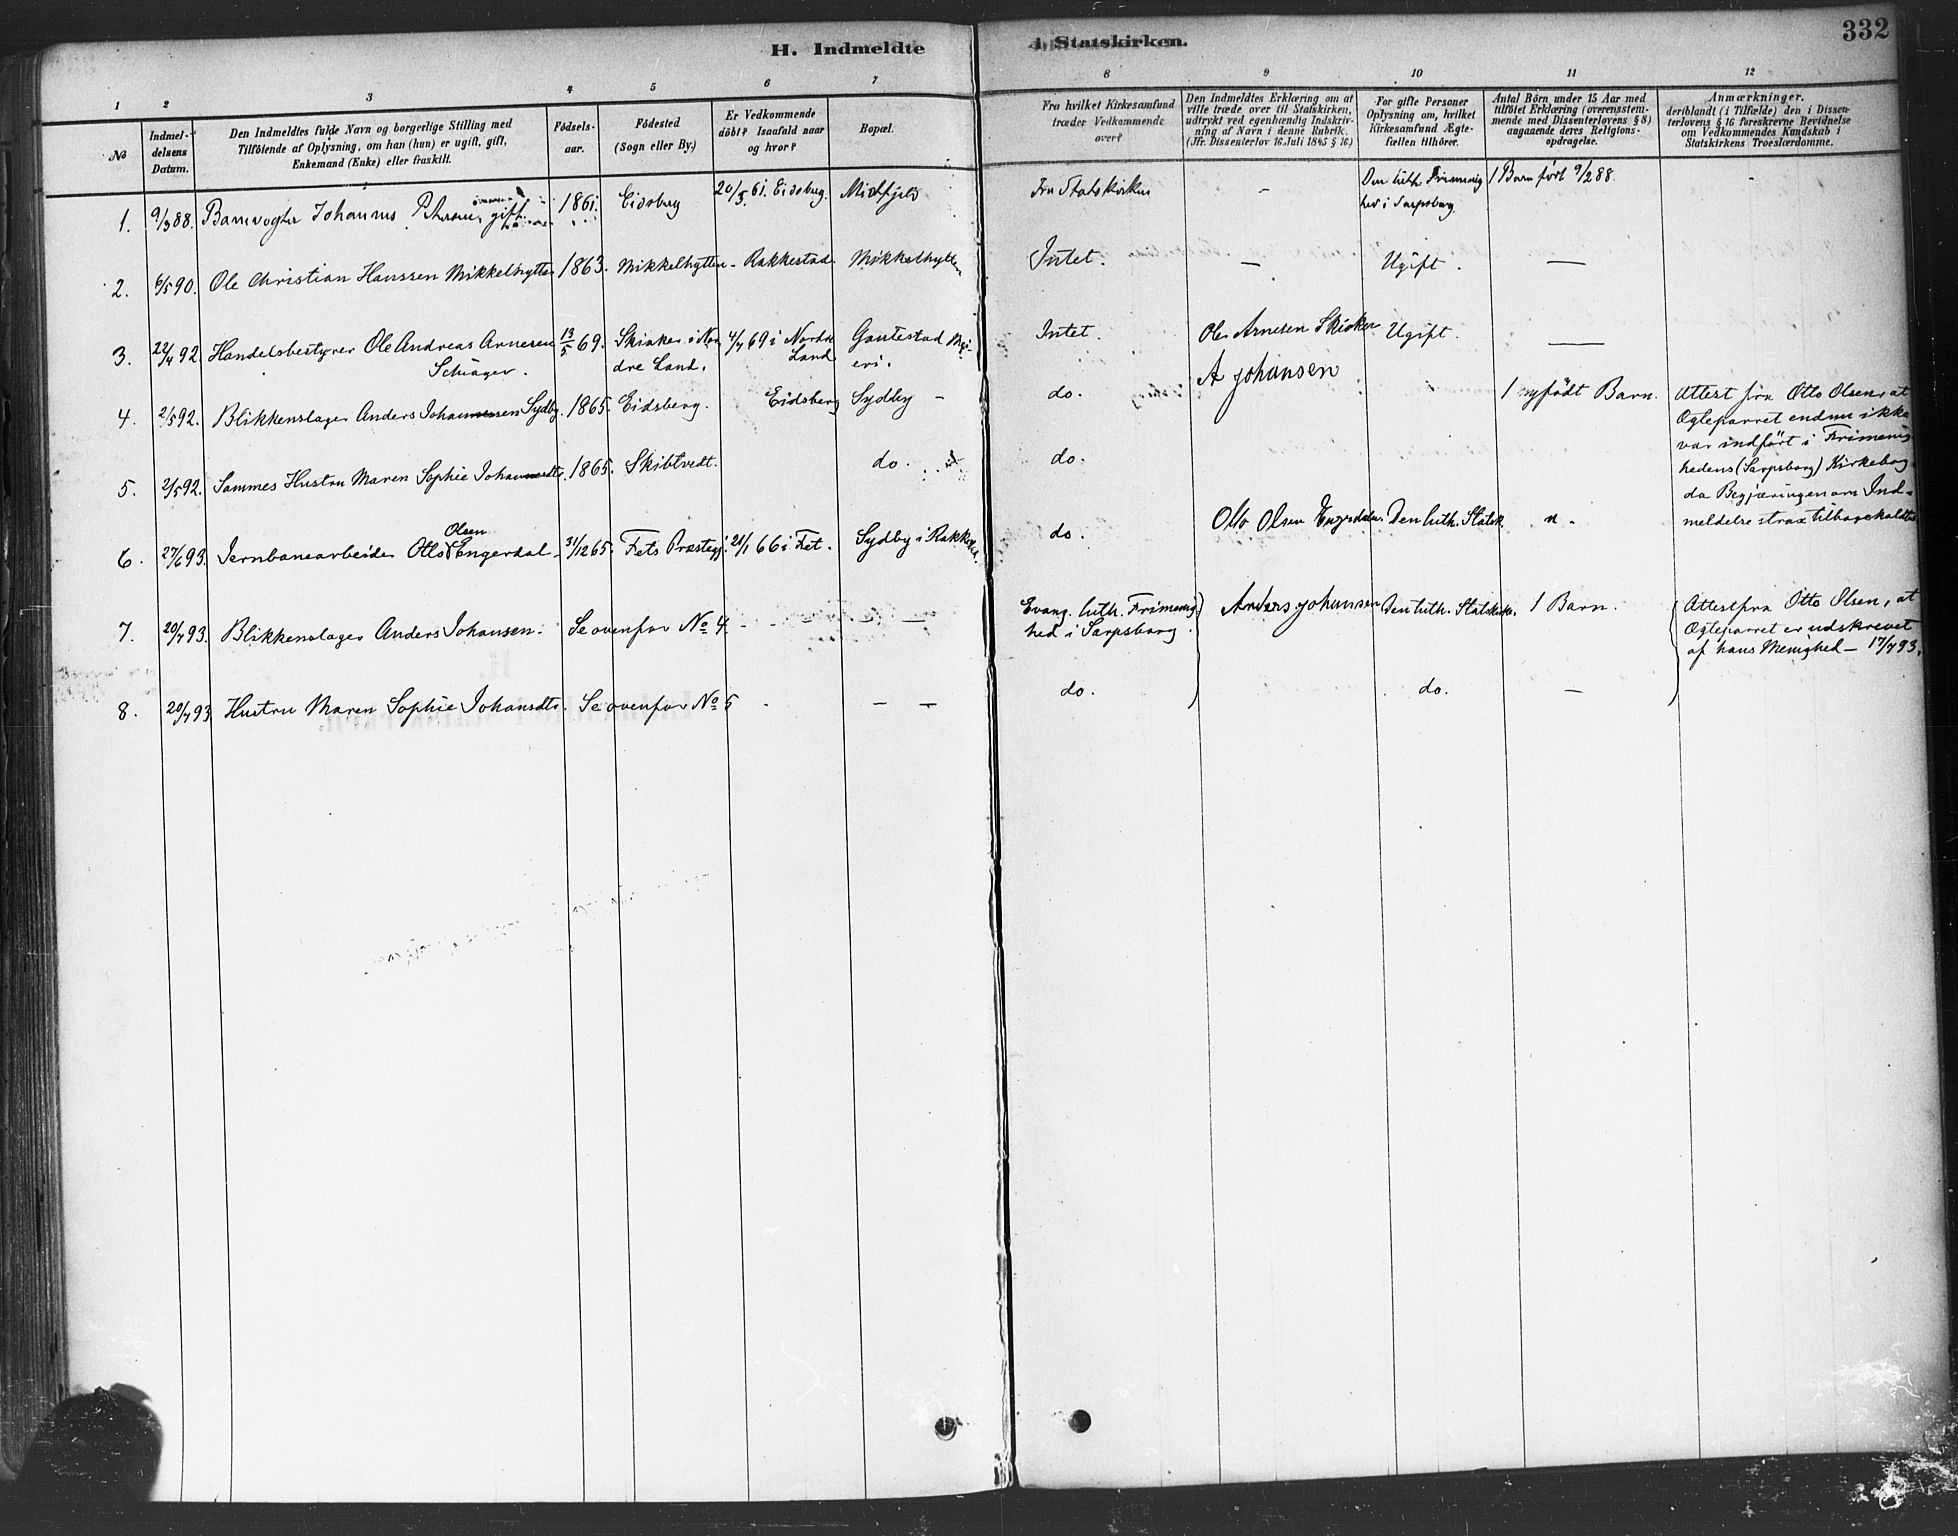 332
H. Indmeldte i Statskirken.
1 2 3 4 5 6 7 8 9 10 11 12
No
Indmel-
delsens
Datum.
Den Indmeldtes fulde Navn og borgerlige Stilling med
Tilföiende af Oplysning, om han (hun) er ugift, gift,
Enkemand (Enke) eller fraskilt.
Födsels-
aar.
Födested
(Sogn eller By.)
Er Vedkommende
döbt? Isaafald naar
og hvor?
Bopæl.
Fra hvilket Kirkesamfund
træder Vedkommende
over?
Den Indmeldtes Erklæring om at
ville træde over til Statskirken,
udtrykt ved egenhændig Indskriv-
ning af Navn i denne Rubrik.
(Jfr. Dissenterlov 16. Juli 1845 § 16)
For gifte Personer
Oplysning om, hvilket
Kirkesamfund Ægte-
fællen tilhörer.
Antal Börn under 15 Aar med
tilföiet Erklæring (overensstem-
mende med Dissenterlovens § 8)
angaaende deres Religions-
opdragelse.
Anmærkninger,
deriblandt (i Tilfælde) den i Dissen-
terlovens § 16 foreskrevne Bevidnelse
om Vedkommendes Kundskab i
Statskirkens Troeslærdomme.
1. 9/3 88. Banevogter Johannes gift. 1861. Eidsberg 20/5 61. Eidsberg. Midtfjeld Fra Statskirken – Den luth. Frimenig 1 Barn født 9/2 88 -
hed i Sarpsborg
2. 6/5 90. Ole Christian Hanssen Mikkelhytten 1863. Mikkelhytten - Rakkestad. Mikkelhytten Intet. — Ugift. —
3. 22/4 92. Handelsbestyrer Ole Andreas Arnesen 13/5 69. Skiaker i Nor 4/7 69 i Nordre Gautestad Mei- Intet. Ole Arnesen Skiaker Ugift. —
Schiager. dre Land. Land eri.
4. 2/5 92. Blikkenslager Anders Johannessen Sydby. 1865. Eidsberg. Eidsberg Sydby – do. A Johansen 1 nyfödt Barn. Attest fra Otto Olsen, at
Ægteparret endnu ikke
var indfört i Frimenig-
5. 2/5 92. Sammes Hustru Maren Sophie Johannesdtr. 1865. Skibtvedt. do. do. hedens (Sarpsborg) Kirkebog
da Begjæringen om Ind-
meldelse strax tilbagekaldtes
6. 27/6 93. Jernbanearbeider Otto Olsen Engerdal - 31/12 65. Fets Præstegj. 21/1 66 i Fet. Sydby i Rakkestad. do. Otto Olsen Engerdalen. Den luth. Statsk. n.
7. 20/7 93. Blikkenslager Anders Johansen. Se ovenfor No 4. Evang. luth. Frimenig- Anders Johansen Den luth. Statskirke. 1 Barn. Attest fra Otto Olsen, at
hed i Sarpsborg. Ægteparret er udskrevet
af hans Menighed — 17/7 93.
8. 20/7 93 Hustru Maren Sophie Johansdtr. Se ovenfor No 5 — — do. do. —